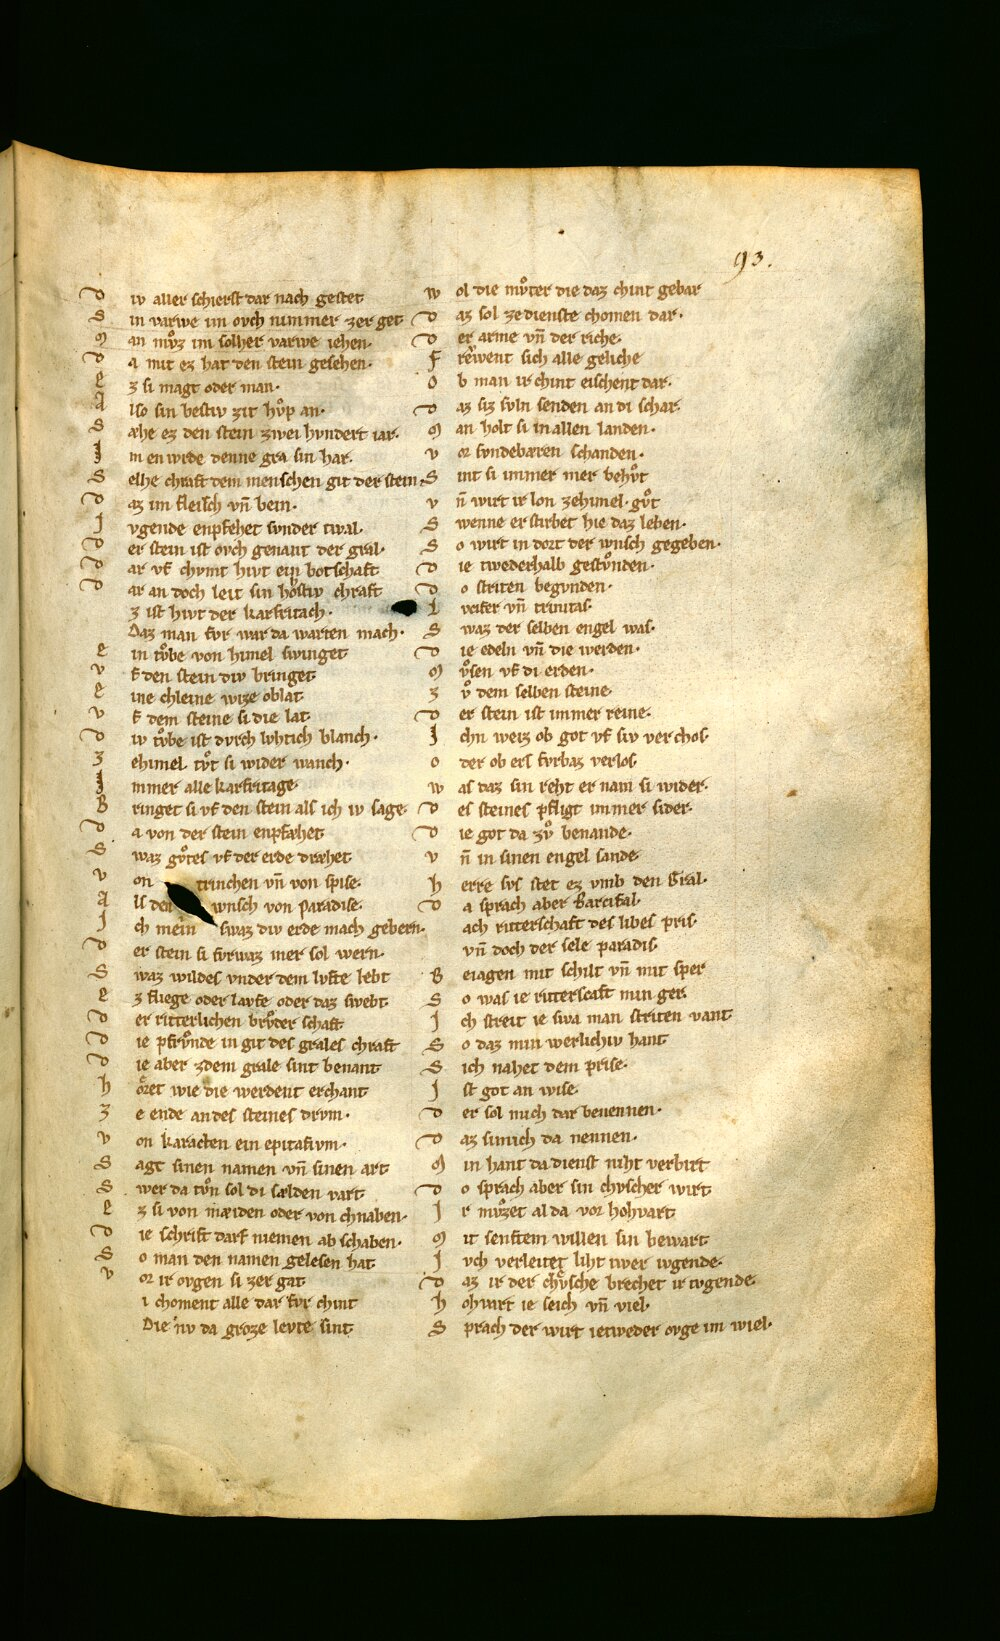 93.
D iv aller schierst dar nach gestet
S in varwe im ovch nimmer zer get
M an mvͦz im solher varwe iehen·
D a mit ez hat den stein gesehen·
E z si magt oder man·
A lso sin bestiv zit hvͦp an·
S æhe ez den stein zwei hvndert iar·
I m en wrde denne gra sin har·
S elhe chraft dem menschen git der stein·
D az im fleisch vn̄ bein·
I vgende enpfehet svnder twal·
D er stein ist ovch genant der gral·
D ar vf chvmt hivt ein botschaft
D ar an doch leit sin hoͤstiv chraft
z ist hivt der karfritach·
Daz man fvr war da warten mach·
E in tvͦbe von himel swinget
V f den stein div bringet
E ine chleine wize oblat
V f dem steine si die lat
D iv tvͦbe ist dvrch lvhtich blanch·
Z ehimel tvͦt si wider wanch·
I mmer alle karfritage
B ringet si vf den stein als ich iv sage
D a von der stein enpfæhet
S waz gvͦtes vf der erde dræhet
V on trinchen vn̄ von spise·
A ls den wnsch von Paradise·
I ch mein swaz div erde mach gebern·
D er stein si fvrwaz mer sol wern·
S waz wildes vnder dem lvfte lebt
E z fliege oder lavfe oder daz swebt
D er ritterlichen brvͦder schaft
D ie pfrvͤnde in git des grales chraft
D ie aber zdem grale sint benant
H oͤret wie die werdent erchant
Z e ende an des steines drvm·
V on karacten ein epitafivm·
S agt sinen namen vn̄ sinen art
S wer da tvͦn sol di sælden vart
E z si von mæiden oder von chnaben·
D ie schrift darf niemen ab schaben·
S o man den namen gelesen hat
V or ir ovgen si zer gat
i choment alle dar fvr chint
Die nv da groze levte sint
W ol die mvͦter die daz chint gebar
D az sol ze dienste chomen dar·
D er arme vn̄ der riche·
F reẘent sich alle geliche
O b man ir chint eischent dar·
D az siz svln senden an di schar·
M an holt si in allen landen·
V or svndebæren schanden·
S int si immer mer behvͦt
V n̄ wirt ir lon zehimel gvͦt
S wenne er stirbet hie daz leben·
S o wirt in dort der wnsch gegeben·
D ie twederhalb gestvͦnden·
D o striten begvnden·
L vcifer vn̄ trinitas·
S waz der selben engel was·
D ie edeln vn̄ die werden·
M vͦsen vf di erden·
Z vͦ dem selben steine
D er stein ist immer reine·
I chn weiz ob got vf siv verchos·
O der ob ers fvrbaz verlos
W as daz sin reht er nam si wider·
D es steines pfligt immer sider·
D ie got da zvͦ benande·
V n̄ in sinen engel sande
H erre svs stet ez vmb den Gral·
D a sprach aber Parcifal·
ach ritterschaft des libes pris
vn̄ doch der sele paradis·
B eiagen mit schilt vn̄ mit sper
S o was ie ritterscaft min ger·
I ch streit ie swa man striten vant
S o daz min werlichiv hant
S ich nahet dem prise·
I st got an wise·
D er sol mich dar benennen·
D az si mich da nennen·
M in hant da dienst niht verbirt
D o sprach aber sin chvscher wirt
I r mvͦzet al da vor hohvart
M it senftem willen sin bewart
I vch verleitet liht iwer ivgende
D az ir der chvͤsche brechet ir tvgende
H ohvart ie seich vn̄ viel·
S prach der wirt ietweder ovge im wiel·